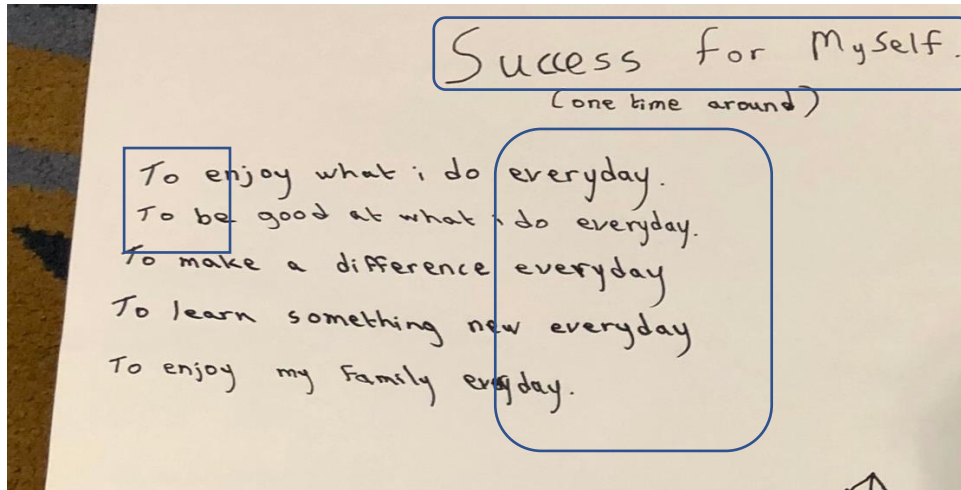 Success for Myself.
(one time around)
To enjoy what i do everyday.
To be good at what i do everyday.
To make a difference everyday
To learn something new everyday
To enjoy my family everyday.